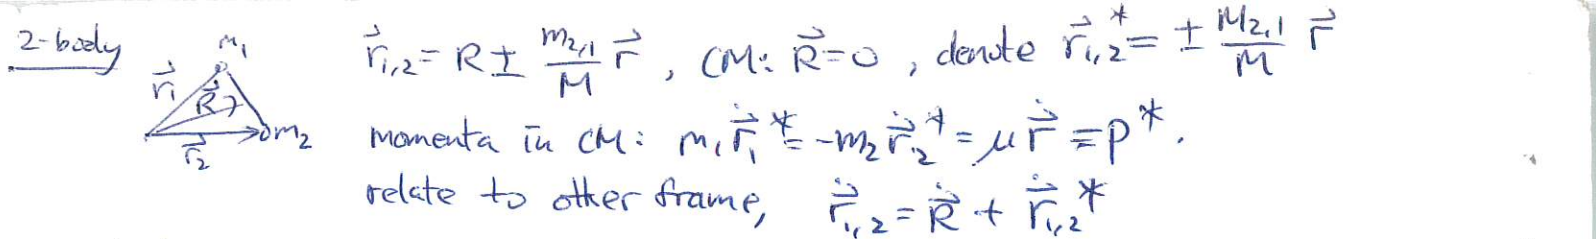 2-body
m₁
r⃗₁
R⃗
m₂
r⃗₂
r⃗₁,₂ = R ± m₂,₁/M r⃗ , CM: R⃗=0 , denote r⃗₁,₂* = ± M₂,₁/M r⃗
momenta in CM: m₁ṙ⃗₁* = -m₂ṙ⃗₂* = μṙ⃗ = p*.
relate to other frame, ṙ⃗₁,₂ = Ṙ⃗ + ṙ⃗₁,₂*